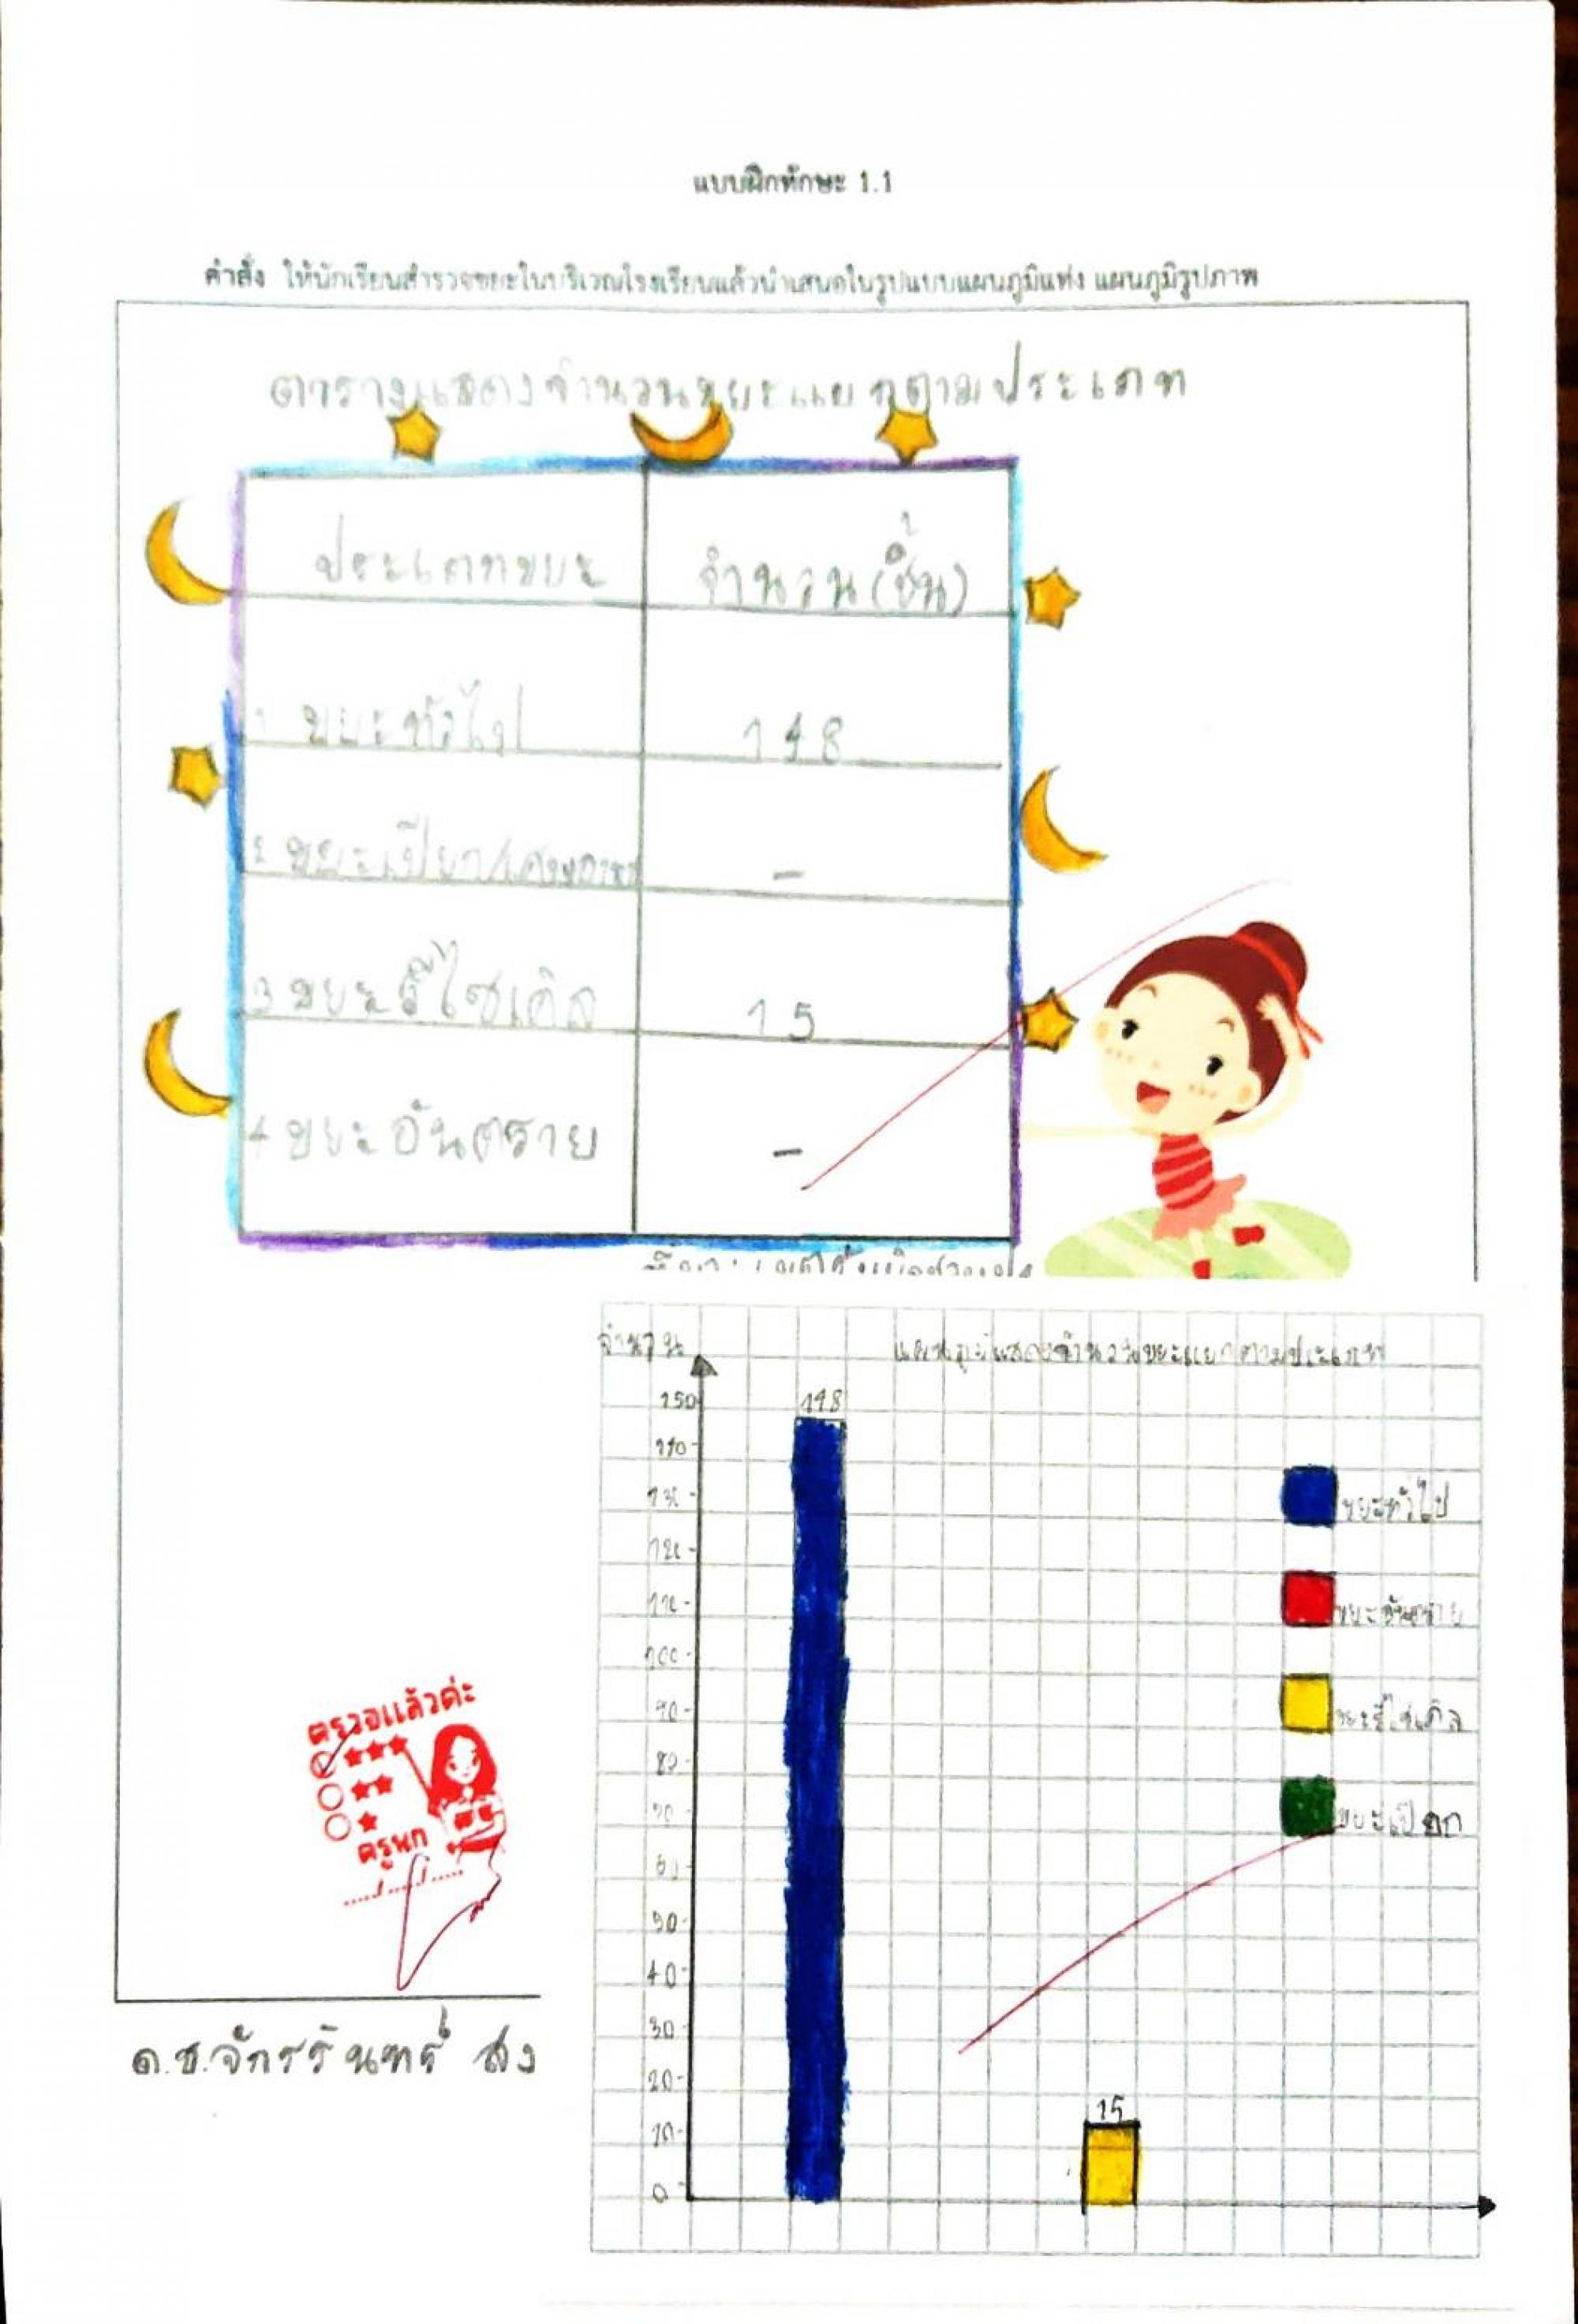 แบบฝึกทักษะ 1.1
คำสั่ง ให้นักเรียนสำรวจขยะในบริเวณโรงเรียนแล้วนำเสนอในรูปแบบแผนภูมิแท่ง แผนภูมิรูปภาพ
ตารางแสดงจำนวนขยะแยกตามประเภท
ประเภทขยะ จำนวน(ชิ้น)
1 ขยะทั่วไป 148
2 ขยะเปียก/เศษอาหาร -
3 ขยะรีไซเคิล 15
4 ขยะอันตราย -
จำนวน
แผนภูมิแสดงจำนวนขยะแยกตามประเภท
150
148
140
130
ขยะทั่วไป
120
110
ขยะอันตราย
100
90
ขยะรีไซเคิล
80
70
ขยะเปียก
60
50
40
30
20
15
10
0
ตรวจแล้วค่ะ
ครูนก
ด.ช.จักรรินทร์ สง